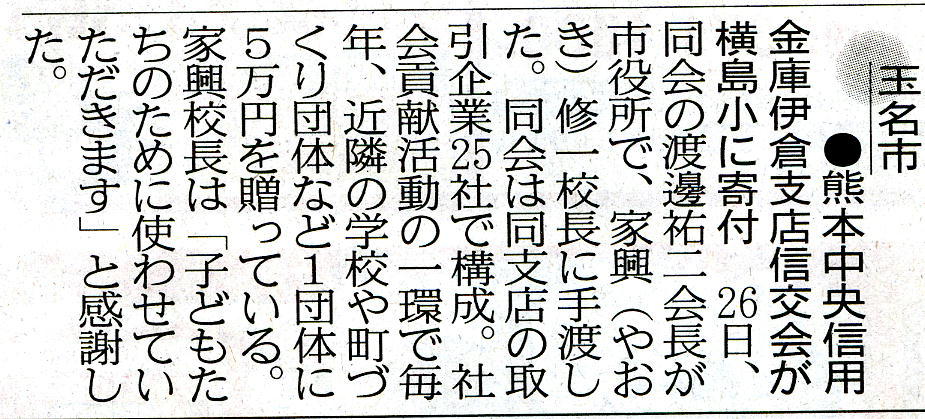 玉名市
●熊本中央信用
金庫伊倉支店信交会が
横島小に寄付　26日、
同会の渡邊祐二会長が
市役所で、家興（やお
き）修一校長に手渡し
た。同会は同支店の取
引企業25社で構成。社
会貢献活動の一環で毎
年、近隣の学校や町づ
くり団体など１団体に
５万円を贈っている。
家興校長は「子どもた
ちのために使わせてい
ただきます」と感謝し
た。